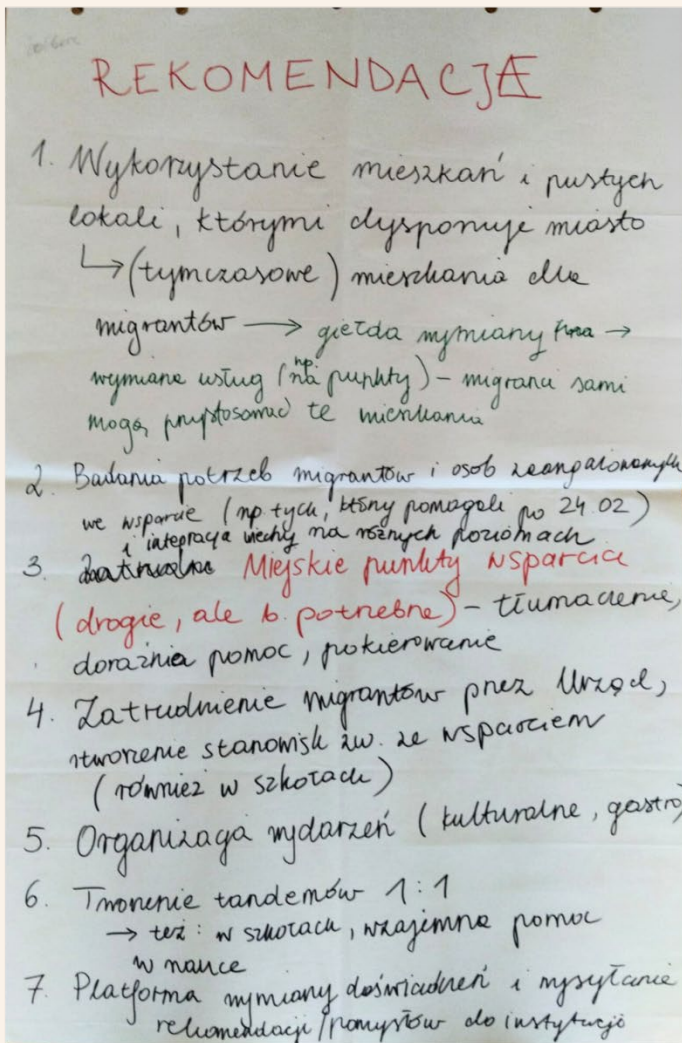 REKOMENDACJE
1. Wykorzystanie mieszkań i pustych
lokali, którymi dysponuje miasto
↳ (tymczasowe) mieszkania dla
migrantów → giełda wymiany →
wymiana usług (np. na punkty) – migranci sami
mogą przystosować te mieszkania
2. Badania potrzeb migrantów i osób zaangażowanych
we wsparcie (np. tych, którzy pomagali po 24.02)
i integracja wiedzy na różnych poziomach
3. Miejskie punkty wsparcia
(drogie, ale b. potrzebne) – tłumaczenie,
doraźnia pomoc, pokierowanie
4. Zatrudnienie migrantów przez Urząd,
stworzenie stanowisk zw. ze wsparciem
(również w szkołach)
5. Organizacja wydarzeń (kulturalne, gastro)
6. Tworzenie tandemów 1:1
→ też: w szkołach, wzajemna pomoc
w nauce
7. Platforma wymiany doświadczeń i wysyłanie
rekomendacji/pomysłów do instytucji